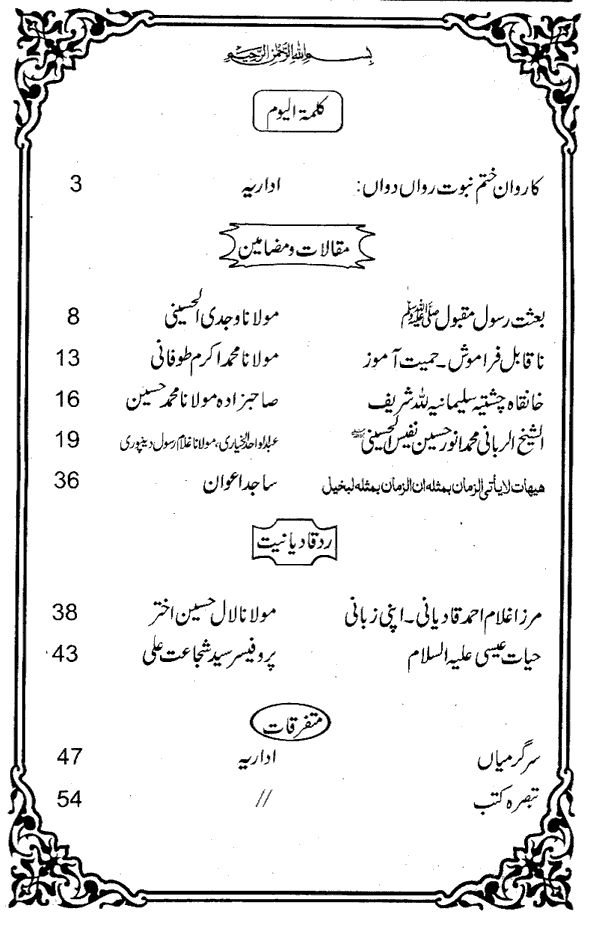 بسم اللہ الرحمٰن الرحیم
کلمۃ الیوم
کاروان ختم نبوت رواں دواں: اداریہ 3
مقالات و مضامین
بعثت رسول مقبول ﷺ مولانا وجدی الحسینی 8
ناقابل فراموش۔ حمیت آموز مولانا محمد اکرم طوفانی 13
خانقاہ چشتیہ سلیمانیہ للہ شریف صاحبزادہ مولانا محمد حسین 16
الشیخ الربانی محمد انور حسین نفیس الحسینی عبدالواحد الخیاری، مولانا غلام رسول دینپوری 19
هیهات لایأتی الزمان بمثله ان الزمان بمثله لبخیل ساجد اعوان 36
رد قادیانیت
مرزا غلام احمد قادیانی۔ اپنی زبانی مولانا لال حسین اختر 38
حیات عیسیٰ علیہ السلام پروفیسر سید شجاعت علی 43
متفرقات
سرگرمیاں اداریہ 47
تبصرہ کتب // 54